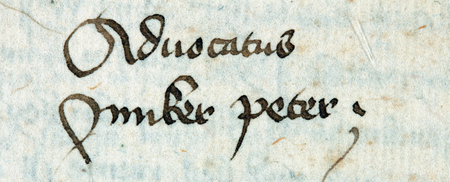 Advocatus
Junker peter ;